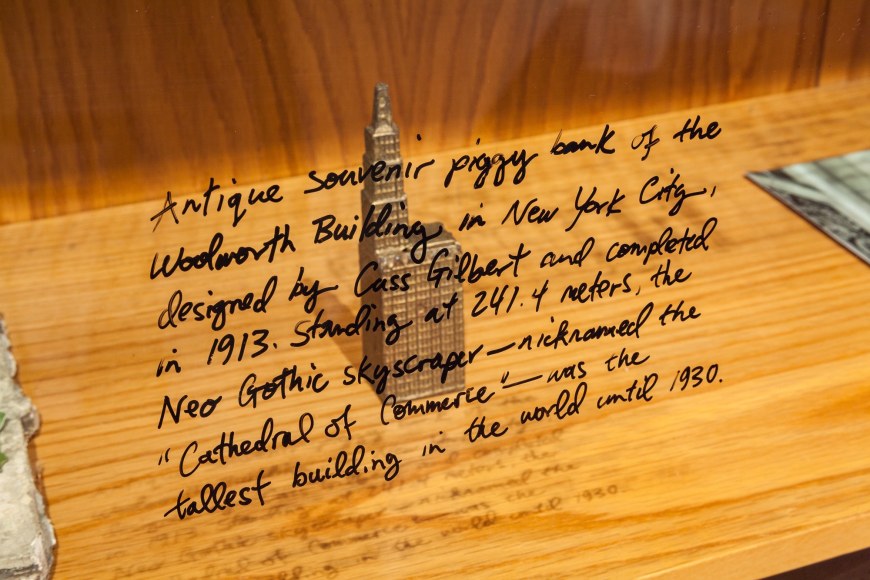 Antique souvenir piggy bank of the
Woolworth Building in New York City,
designed by Cass Gilbert and completed
in 1913. Standing at 241.4 meters, the
Neo Gothic skyscraper—nicknamed the
"Cathedral of Commerce"—was the
tallest building in the world until 1930.